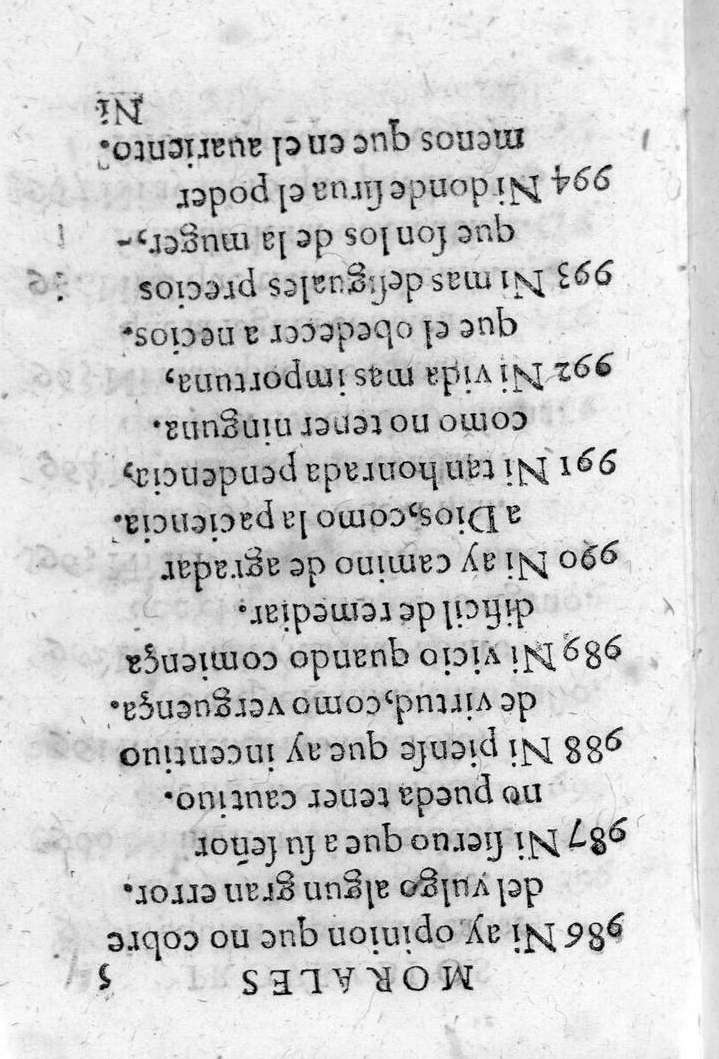 MORALES 5
986 Ni ay opinion que no cobre
del vulgo algun gran error.
987 Ni sieruo que a su señor
no pueda tener cautiuo.
988 Ni piense que ay incentiuo
de virtud, como verguença.
989 Ni vicio quando comiença
dificil de remediar.
990 Ni ay camino de agradar
a Dios, como la paciencia.
991 Ni tan honrada pendencia,
como no tener ninguna.
992 Ni vida mas importuna,
que el obedecer a necios.
993 Ni mas desiguales precios
que son los de la muger,
994 Ni donde sirua el poder
menos que en el auariento.
Ni